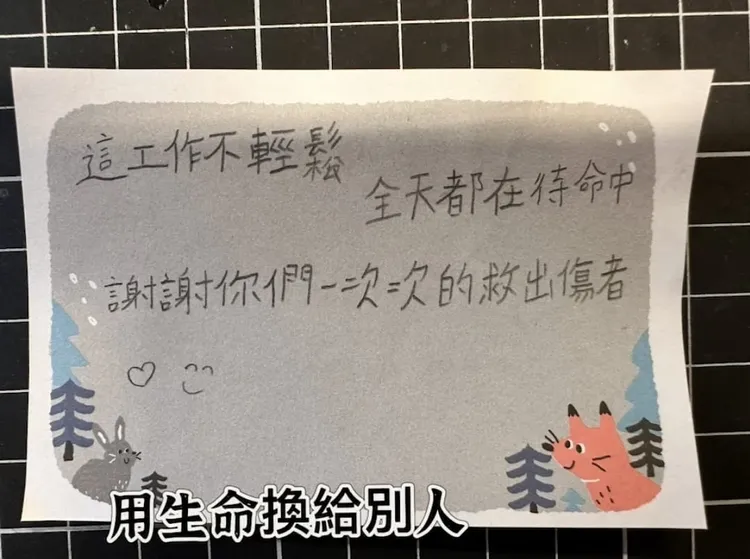 這工作不輕鬆
全天都在待命中
謝謝你們一次次的救出傷者
用生命換給別人